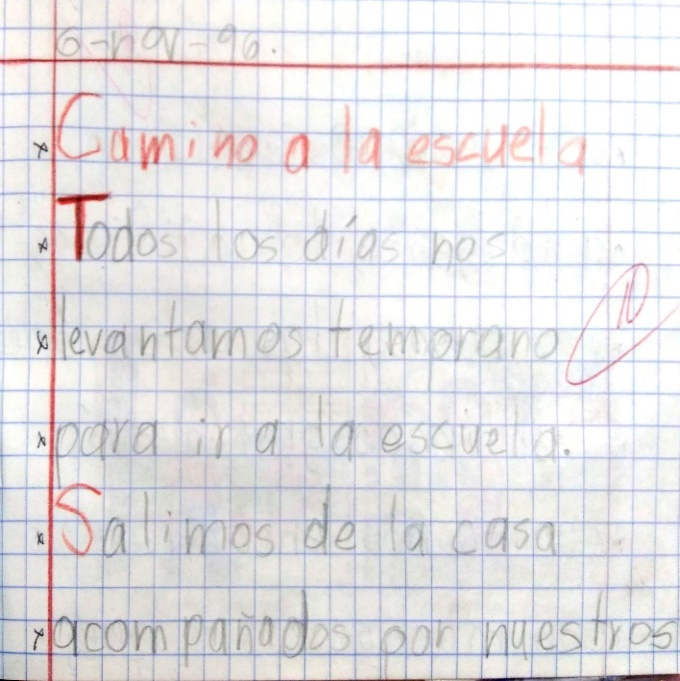 6-nov-96.
Camino a la escuela
Todos los días nos
levantamos temprano
10
para ir a la escuela.
Salimos de la casa
acompañados por nuestros